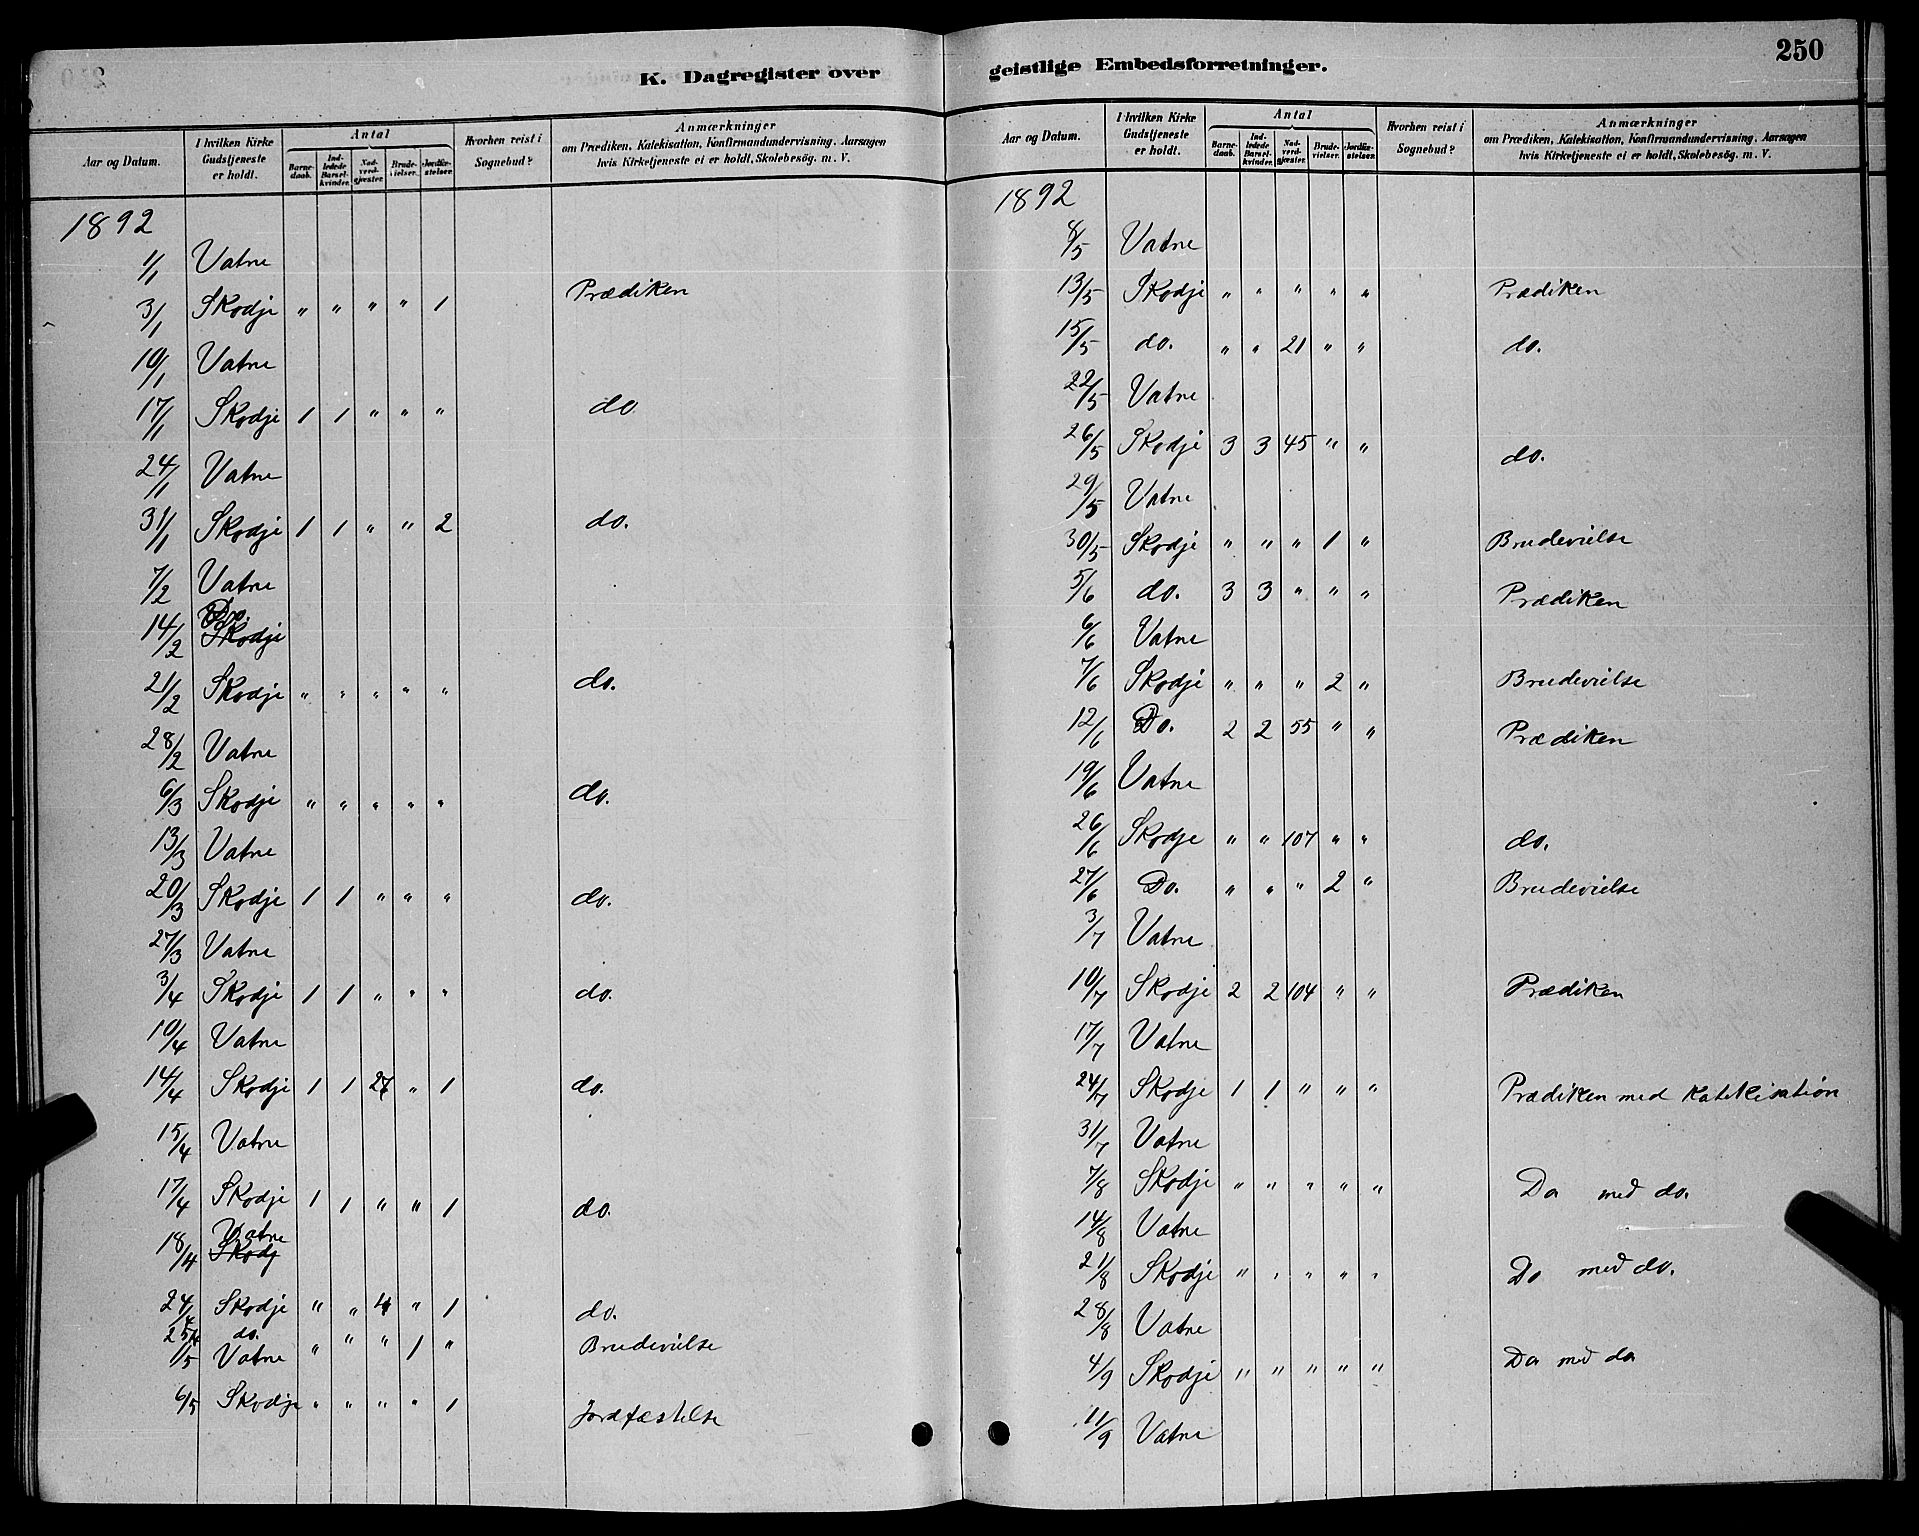 K. Dagregister over
Aar og Datum. I hvilken Kirke Gudstjeneste er holdt. Antal Barnedaab. Indledede Barselkvinder. Nadverdgjæster. Brudevielser. Jordfæstelser. Hvorhen reist i Sognebud? Anmærkninger om Prædiken, Katekisation, Konfirmandundervisning, Aarsagen hvis Kirketjeneste ei er holdt, Skolebesög. m. V.
1892
1/1 Vatne
3/1 Skodje " " " " 1 Prædiken
10/1 Vatne
17/1 Skodje 1 1 " " " do
24/1 Vatne
31/1 Skodje 1 1 " " 2 do.
7/2 Vatne
14/2 Do. Skodje
21/2 Skodje " " " " " do.
28/2 Vatne
6/3 Skodje " " " " " do.
13/3 Vatne
20/3 Skodje 1 1 " " " do.
27/3 Vatne
3/4 Skodje 1 1 " " " do.
10/4 Vatne
14/4 Skodje 1 1 27 " 1 do.
15/4 Vatne
17/4 Skodje 1 1 " " 1 do.
18/4 Vatne Skodj
24/4 Skodje " " 4 " 1 do.
25/4 do. " " " 1 " Brudevielse
1/5 Vatne
6/5 Skodje " " " " 1 Jordfæstelse
geistlige Embedsforretninger.
250
Aar og Datum. I hvilken Kirke Gudstjeneste er holdt. Antal Barnedaab. Indledede Barselkvinder. Nadverdgjæster. Brudevielser. Jordfæstelser. Hvorhen reist i Sognebud? Anmærkninger om Prædiken, Katekisation, Konfirmandundervisning, Aarsagen hvis Kirketjeneste ei er holdt, Skolebesög. m. V.
1892
8/5 Vatne
13/5 Skodje " " " " " Prædiken
15/5 do. " " 21 " " do.
22/5 Vatne
26/5 Skodje 3 3 45 " " do.
29/5 Vatne
30/5 Skodje " " " 1 " Brudevielse
5/6 do. 3 3 " " " Prædiken
6/6 Vatne
7/6 Skodje " " " 2 " Brudevielse
12/6 Do. 2 2 55 " " Prædiken
19/6 Vatne
26/6 Skodje " " 107 " " do.
27/6 Do. " " " 2 " Brudevielse
3/7 Vatne
10/7 Skodje 2 2 104 " " Prædiken
17/7 Vatne
24/7 Skodje 1 1 " " " Prædiken med Katekisation
31/7 Vatne
7/8 Skodje " " " " " Do med do.
14/8 Vatne
21/8 Skodje " " " " " Do med do.
28/8 Vatne
4/9 Skodje " " " " " Do med do
11/9 Vatne